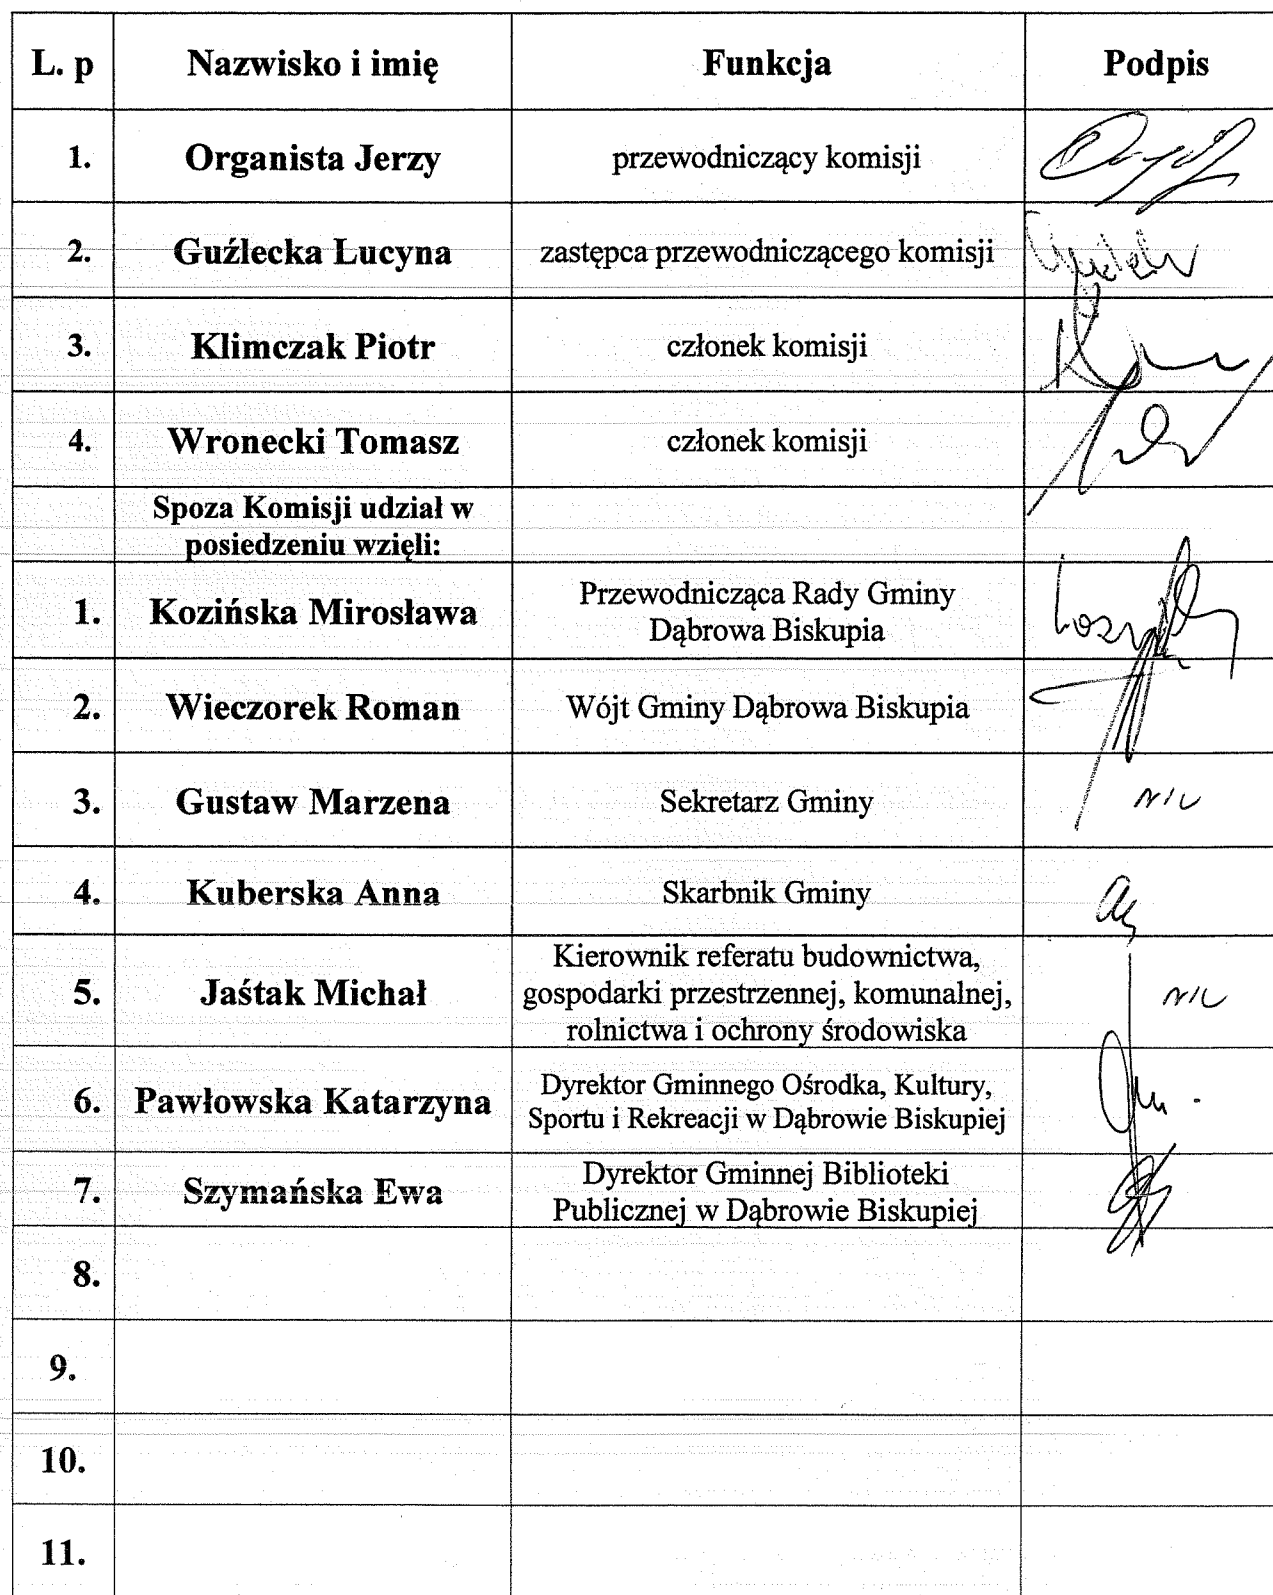 L. p Nazwisko i imię Funkcja Podpis
1. Organista Jerzy przewodniczący komisji
2. Guźlecka Lucyna zastępca przewodniczącego komisji
3. Klimczak Piotr członek komisji
4. Wronecki Tomasz członek komisji
Spoza Komisji udział w
posiedzeniu wzięli:
1. Kozińska Mirosława Przewodnicząca Rady Gminy
Dąbrowa Biskupia
2. Wieczorek Roman Wójt Gminy Dąbrowa Biskupia
3. Gustaw Marzena Sekretarz Gminy
4. Kuberska Anna Skarbnik Gminy
Kierownik referatu budownictwa,
5. Jaśtak Michał gospodarki przestrzennej, komunalnej,
rolnictwa i ochrony środowiska
6. Pawłowska Katarzyna Dyrektor Gminnego Ośrodka, Kultury,
Sportu i Rekreacji w Dąbrowie Biskupiej
7. Szymańska Ewa Dyrektor Gminnej Biblioteki
Publicznej w Dąbrowie Biskupiej
8.
9.
10.
11.